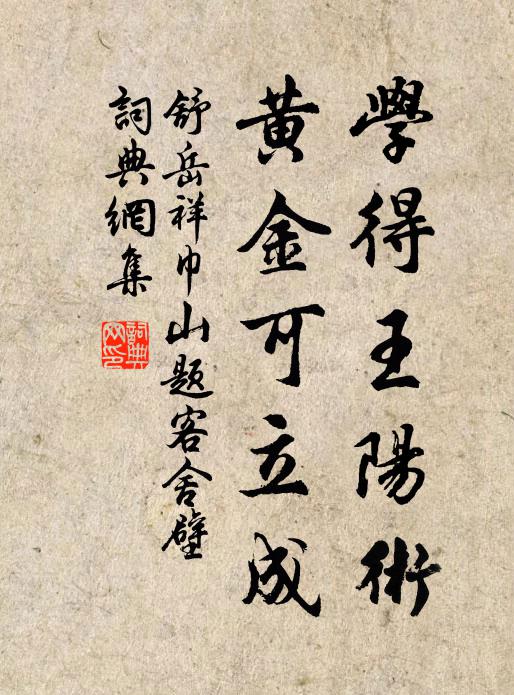 學得王陽術
黃金可立成
舒岳祥巾山題客舍壁
詞典網集
詞典網印